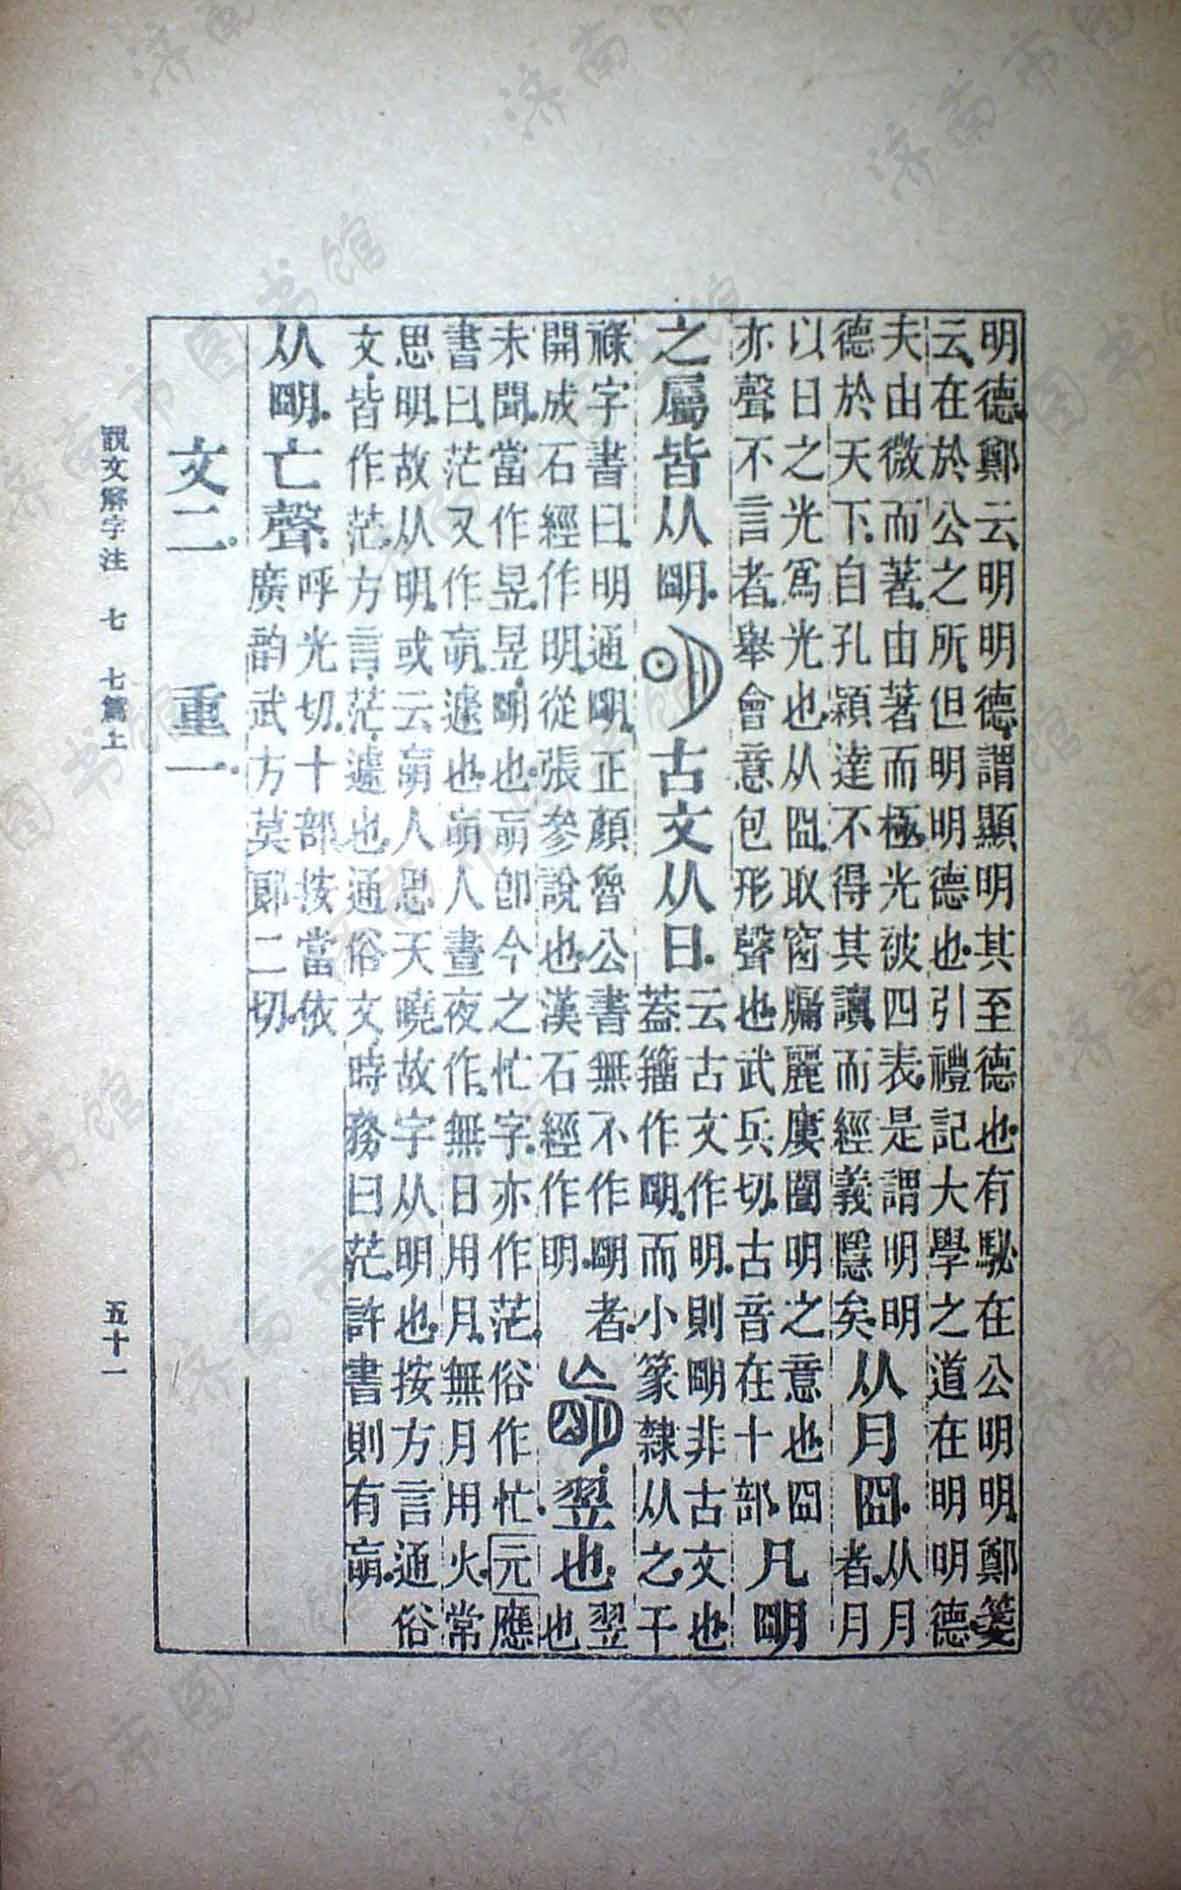 明德鄭云明明德謂顯明其至德也有駜在公明明鄭箋
云在於公之所但明明德也引禮記大學之道在明明德
夫由微而著由著而極光被四表是謂明明
德於天下自孔穎達不得其讀而經義隱矣
从月囧
从月
者月
以日之光爲光也从囧取窗牖麗廔闓明之意也囧
亦聲不言者舉會意包形聲也武兵切古音在十部
凡朙
之屬皆从朙 古文从日
云古文作明則朙非古文也
蓋籒作朙而小篆隸从之干
祿字書曰明通朙正顏魯公書無不作朙者
開成石經作明從張參說也漢石經作明
翌也
翌
也
未聞當作昱昱朙也朚卽今之忙字亦作茫俗作忙元應
書曰茫又作朚遽也朚人晝夜作無日用月無月用火常
思明故从明或云朚人思天曉故字从明也按方言通俗
文皆作茫方言茫遽也通俗文時務曰茫許書則有朚
从朙亡聲
呼光切十部按當依
廣韵武方莫郞二切
文二 重一
說文解字注 七 七篇上 五十一
济南市图书馆